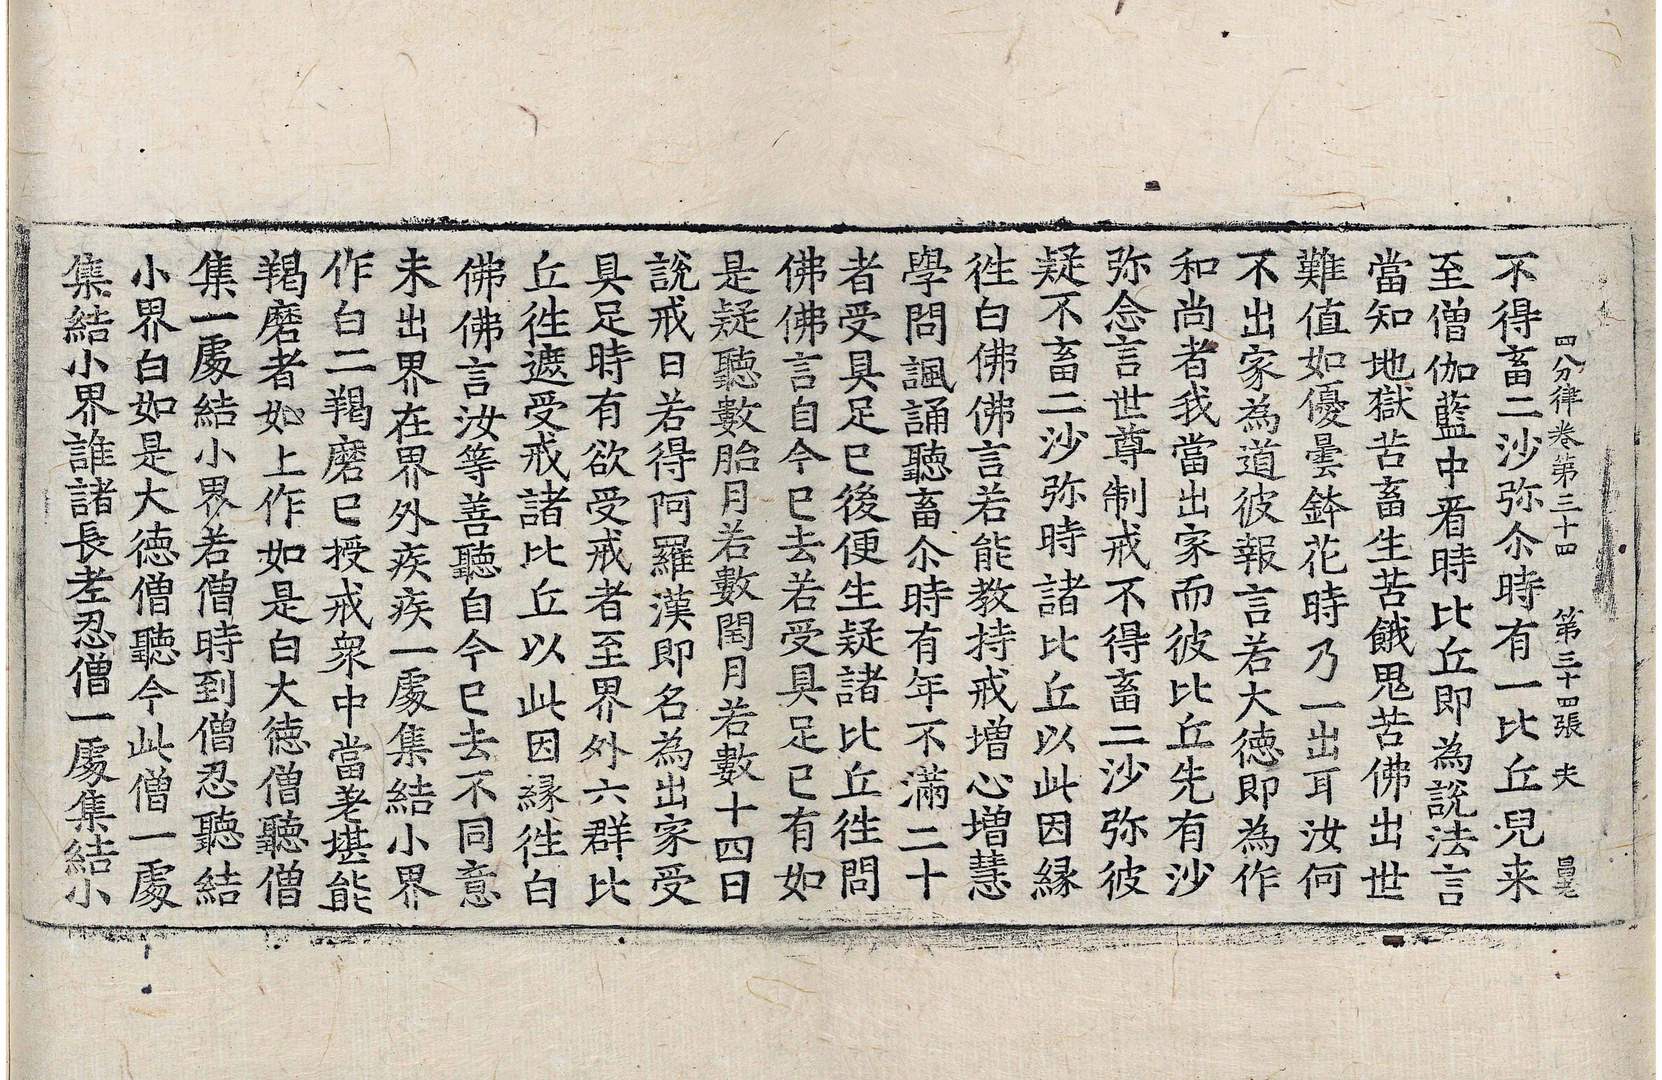 四分律卷第三十四 第三十四張 夫 昌老
不得畜二沙弥尒時有一比丘兒来
至僧伽藍中看時比丘即為説法言
當知地獄苦畜生苦餓鬼苦佛出世
難值如優曇鉢花時乃一出耳汝何
不出家為道彼報言若大徳即為作
和尚者我當出家而彼比丘先有沙
弥念言世尊制戒不得畜二沙弥彼
疑不畜二沙弥時諸比丘以此因縁
徃白佛佛言若能教持戒增心增慧
學問諷誦聽畜尒時有年不滿二十
者受具足已後便生疑諸比丘徃問
佛佛言自今已去若受具足已有如
是疑聽數胎月若數閏月若數十四日
説戒日若得阿羅漢即名為出家受
具足時有欲受戒者至界外六群比
丘徃遮受戒諸比丘以此因縁徃白
佛佛言汝等善聽自今已去不同意
未出界在界外疾疾一處集結小界
作白二羯磨已授戒衆中當差堪能
羯磨者如上作如是白大徳僧聽僧
集一處結小界若僧時到僧忍聽結
小界白如是大徳僧聽今此僧一處
集結小界誰諸長老忍僧一處集結小